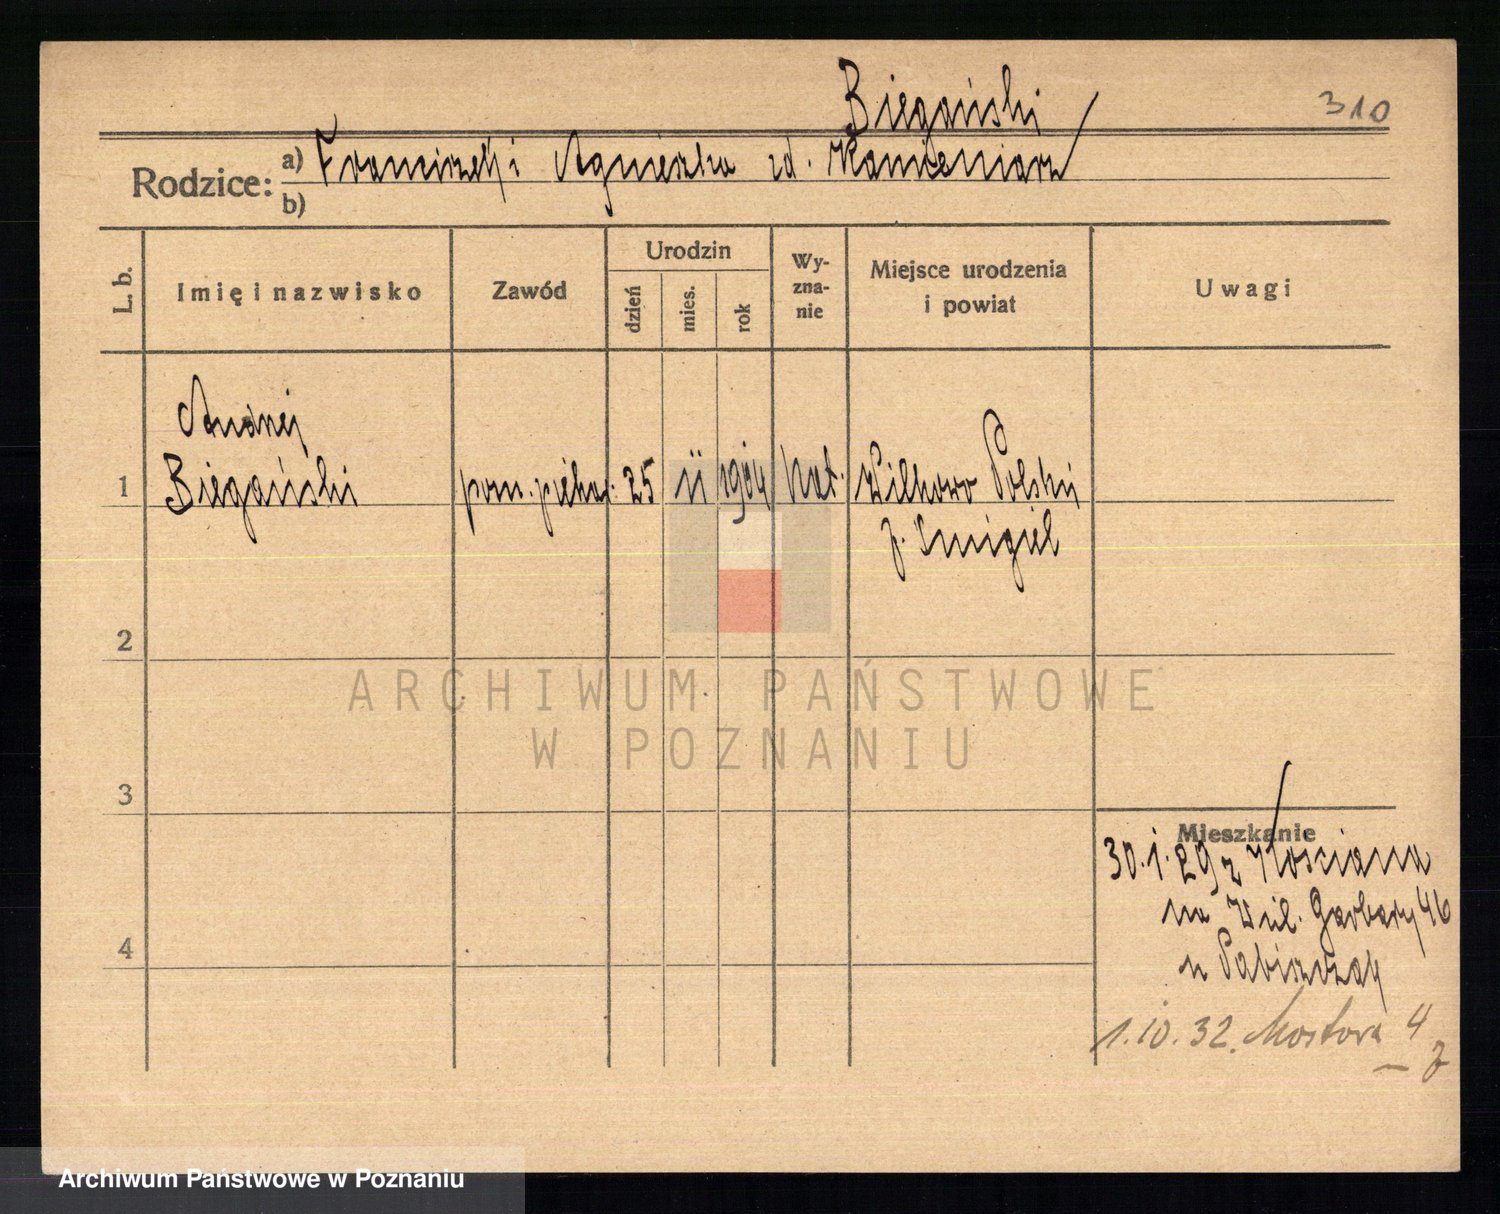 Biegański
310
Rodzice:
a) Franciszek i Agnieszka zd. Kamieniarz
b)
L. b.
Imię i nazwisko
Zawód
Urodzin
dzień
mies.
rok
Wy-
zna-
nie
Miejsce urodzenia
i powiat
Uwagi
Andrzej
1 Biegański pom. piekar. 25 11 1904 kat. Wilkowo Polskie
p. Śmigiel
2
3
4
Mieszkanie
30.1.29 z Kościana
na Wiel. Garbary 46
u Pabiszczak
1.10.32. Mostowa 4
ARCHIWUM PAŃSTWOWE
W POZNANIU
Archiwum Państwowe w Poznaniu